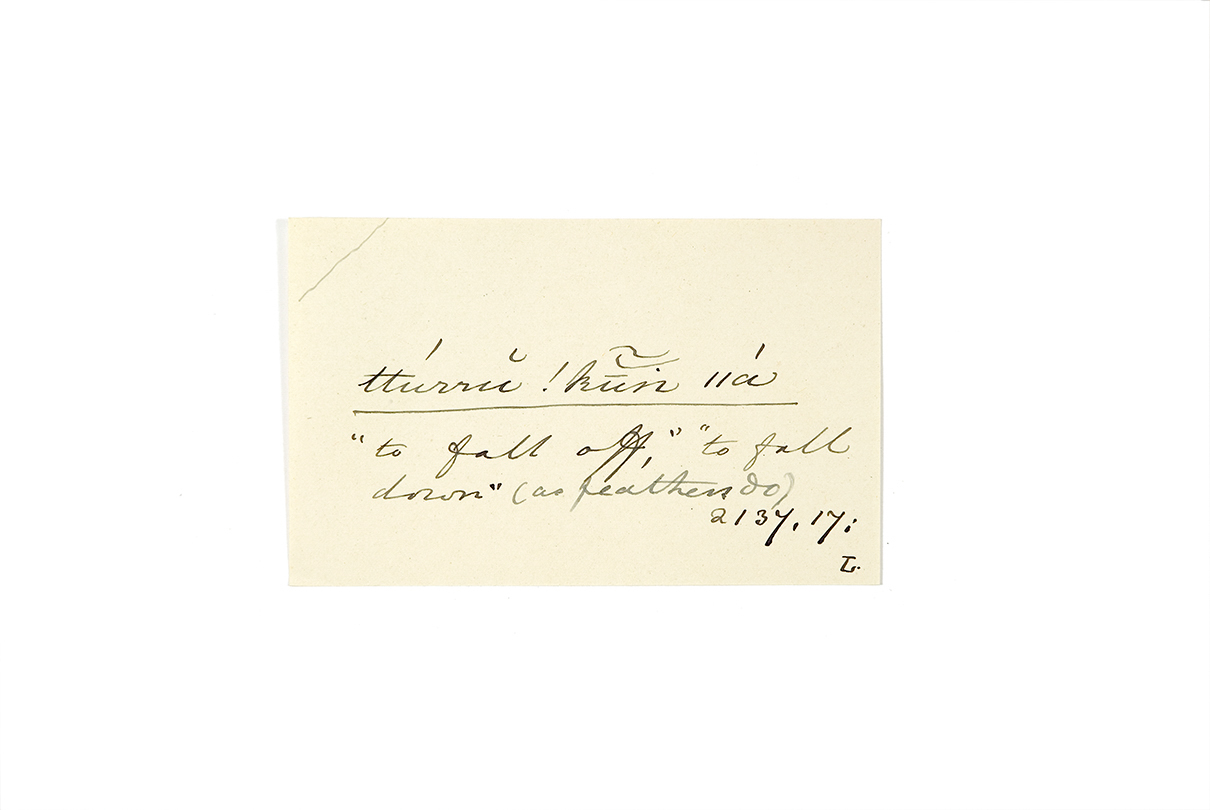 ttúrrŭ !kū̃in ııá
"to fall off," "to fall
down" (as feathers do)
2137, 17:
L.